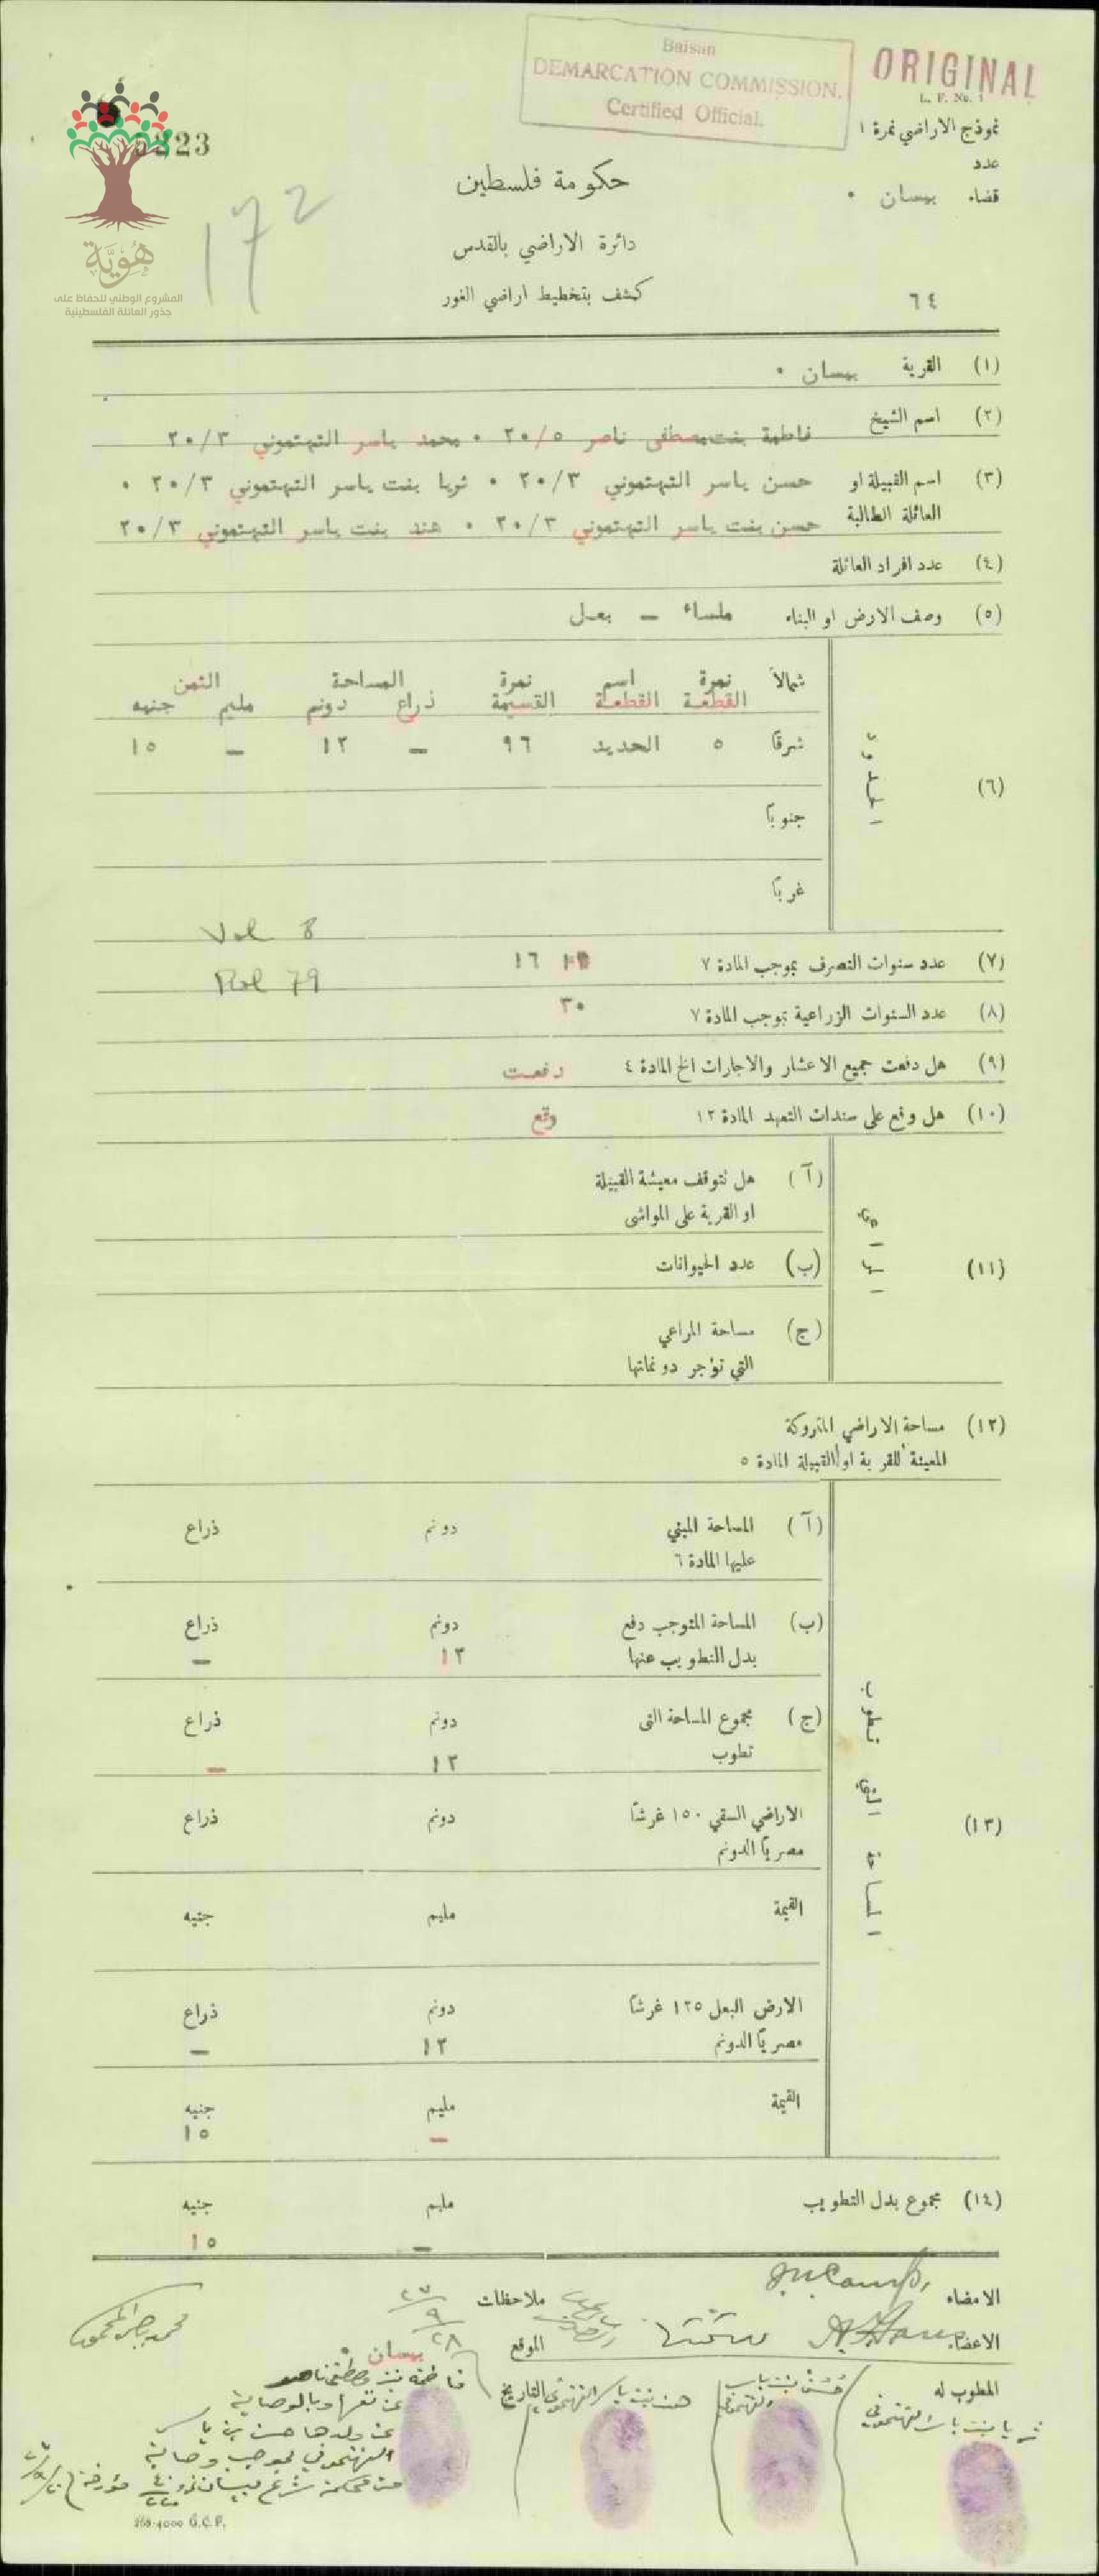 Baisan
DEMARCATION COMMISSION.
Certified Official.
ORIGINAL
L. F. No. 1
نموذج الاراضي نمرة ١
عدد
قضاء بيسان ٠
223
172
حكومة فلسطين
دائرة الاراضي بالقدس
كشف بتخطيط اراضي الغور
٦٤
هُوِيَّة
المشروع الوطني للحفاظ على
جذور العائلة الفلسطينية
(١) القرية بيسان ٠
(٢) اسم الشيخ فاطمة بنت مصطفى ناصر ٢٠/٥ ٠ محمد ياسر التهتموني ٢٠/٣
(٣) اسم القبيلة او حسن ياسر التهتموني ٢٠/٣ ٠ ثريا بنت ياسر التهتموني ٢٠/٣ ٠
العائلة الطالبة حسن بنت ياسر التهتموني ٢٠/٣ ٠ هند بنت ياسر التهتموني ٢٠/٣
(٤) عدد افراد العائلة
(٥) وصف الارض او البناء ملساء — بعل
(٦) الحدود
شمالاً نمرة القطعة اسم القطعة نمرة القسيمة المساحة ذراع دونم الثمن مليم جنيه
شرقاً ٥ الحديد ٩٦ — ١٢ — ١٥
جنوباً
غرباً
Vol 8
(٧) عدد سنوات التصرف بموجب المادة ٧ ١٦
Fol 79
(٨) عدد السنوات الزراعية بموجب المادة ٧ ٣٠
(٩) هل دفعت جميع الاعشار والاجارات الخ المادة ٤ دفعت
(١٠) هل وقع على سندات التعهد المادة ١٢ وقع
(١١)
(آ) هل تتوقف معيشة القبيلة
او القرية على المواشي
(ب) عدد الحيوانات
(ج) مساحة المراعي
التي تؤجر دونماتها
(١٢) مساحة الاراضي المتروكة
المعينة للقرية او القبيلة المادة ٥
(١٣)
(آ) المساحة المبني دونم ذراع
عليها المادة ٦
(ب) المساحة المتوجب دفع دونم ذراع
بدل التطويب عنها ١٢ —
(ج) مجموع المساحة التي دونم ذراع
تطوب ١٢ —
الاراضي السقي ١٥٠ غرشاً دونم ذراع
مصرياً الدونم
القيمة مليم جنيه
الارض البعل ١٢٥ غرشاً دونم ذراع
مصرياً الدونم ١٢ —
القيمة مليم جنيه
— ١٥
(١٤) مجموع بدل التطويب مليم جنيه
— ١٥
الامضاء
ملاحظات
٢٧/٩/٢٨
الاعضاء
الموقع بيسان ٠
المطوب له
ثريا بنت ياسر التهتموني
حسن بنت ياسر التهتموني
هند بنت ياسر التهتموني
التاريخ
فاطمة بنت مصطفى ناصر
عن نفسها وبالوصاية
عن ولدها حسن بن ياسر
التهتموني بموجب وصاية
من محكمة شرع بيسان
558-4000 G.C.P.